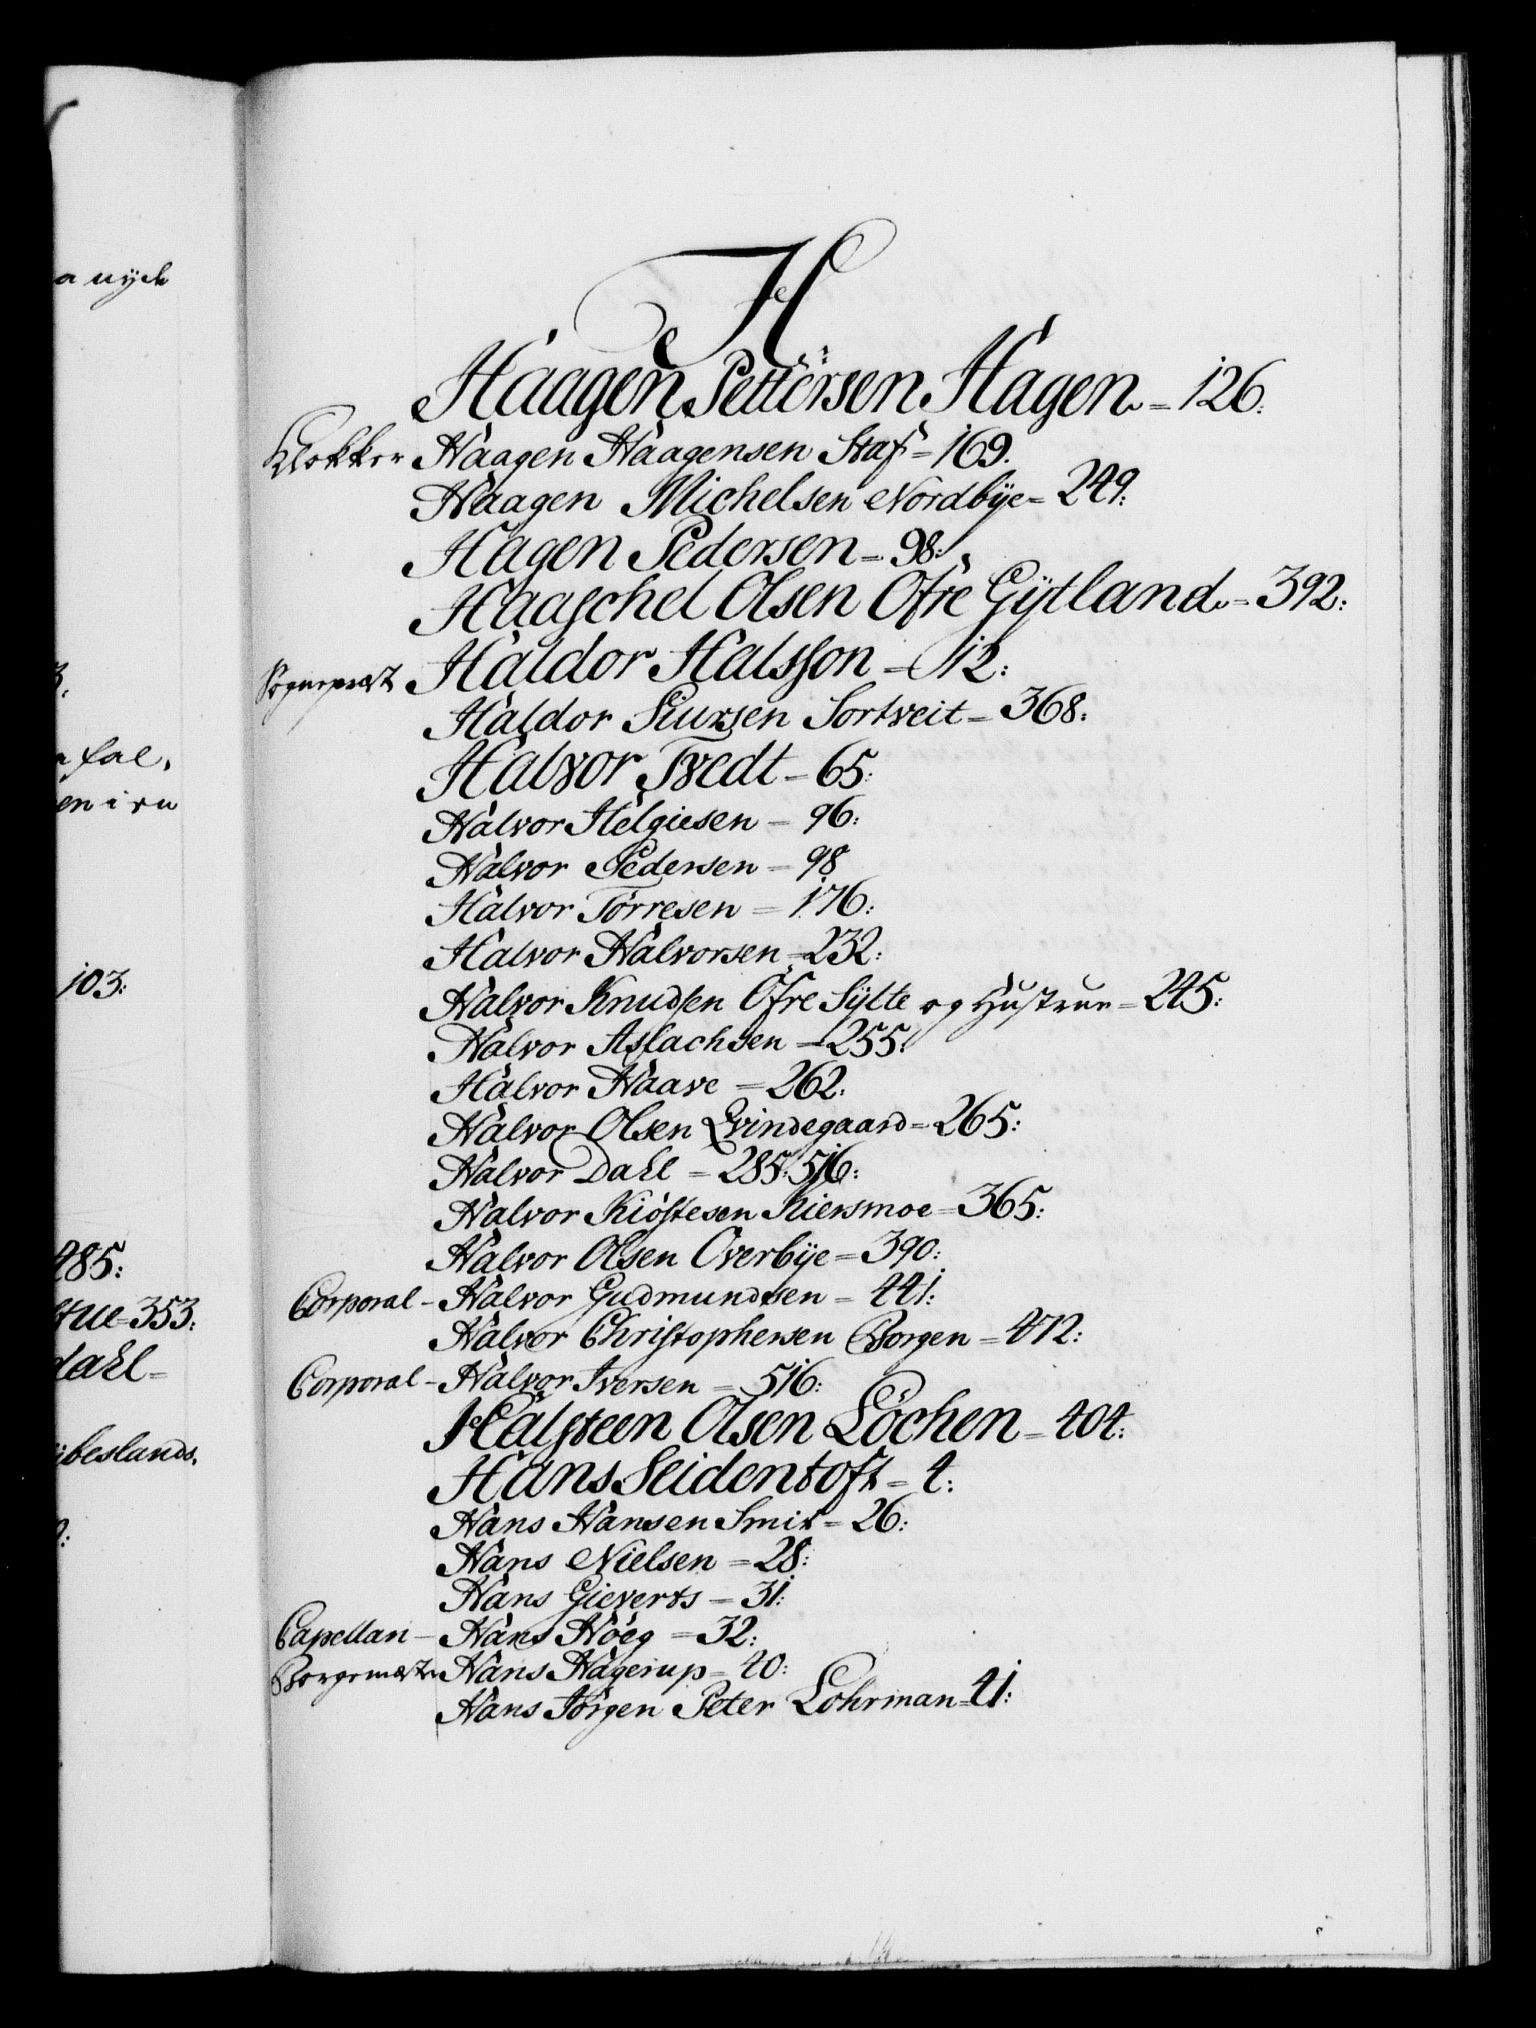 H
Haagen Pettersen Hagen = 126.
Klokker Haagen Haagensen Staf = 169.
Haagen Michelsen Nordbÿe = 249:
Hagen Pedersen = 98:
Haaschel Olsen Öfre Gÿtland = 392:
Sogneprest Haldor Halsson = 12:
Haldor Siursen Sortveit = 368:
Halvor Tvedt = 65:
Halvor Helgiesen = 96:
Halvor Pedersen = 98
Halvor Törresen = 176:
Halvor Halvorsen = 232:
Halvor Knudsen Öfre Sÿlte og Hustrue = 245:
Halvor Aslachsen = 255:
Halvor Haave = 262:
Halvor Olsen Qvindegaard = 265:
Halvor Dahl = 285: 516:
Halvor Kiöstesen Kiersmoe = 365:
Halvor Olsen Overbÿe = 390:
Corporal - Halvor Gudmundsen = 441:
Halvor Christophersen Borgen = 472:
Corporal - Halvor Iversen = 516:
Halsteen Olsen Löchen = 404:
Hans Seidentoft = 4:
Hans Hansen Smit = 26:
Hans Nielsen = 28:
Hans Gieverts = 31:
Capellan - Hans Höeg = 32:
Borgemester Hans Hagerup = 40:
Hans Jörgen Peter Lohrman = 41:
103:
485:
353:
dahl =